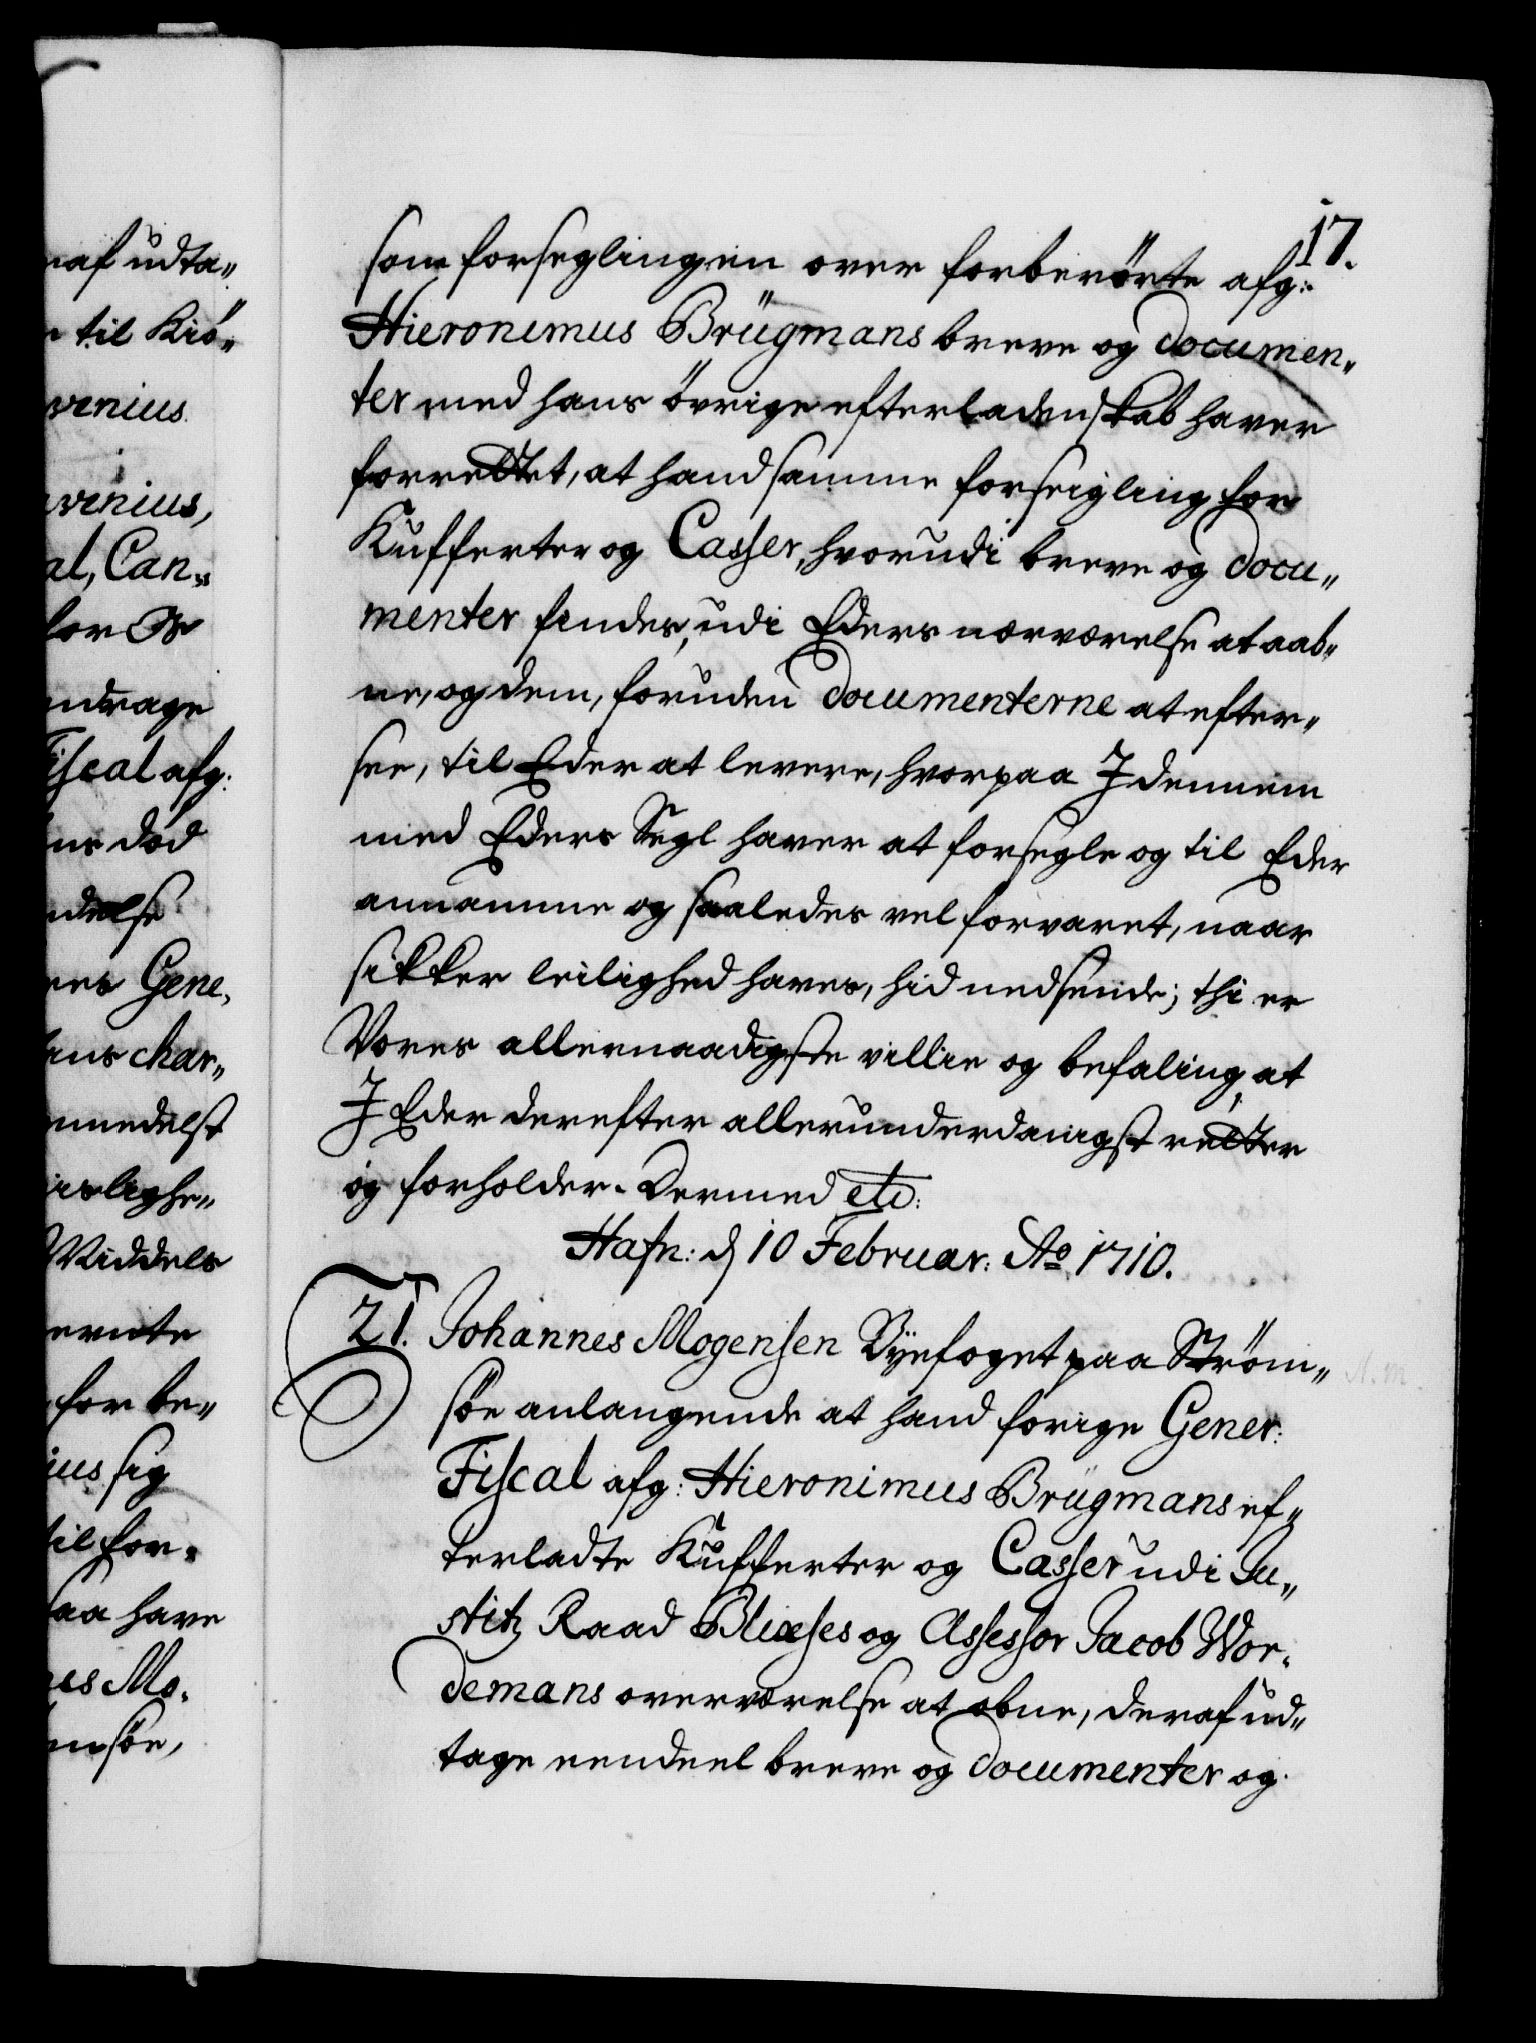 17.
som forseglingen over forberörte afg:
Hieronimus Brügmans breve og documen„
ter med hans övrige efterladenskab haver
forrettet, at hand samme forseigling for
Kufferter og Casser, hvorudi breve og docu„
menter findes, udi Eders nærværelse at aab„
ne, og dem, foruden documenterne at efter„
see, til Eder at levere, hvorpaa I dennem
med Eders Segl haver at forsegle og til Eder
annamme og saaledes vel forvaret, naar
sikker leilighed haves, hid nedsende; thi er
Vores allernaadigste villie og befaling, at
I Eder derefter allerunderdanigst retter
og forholder. Dermed etc:
Hafn: d 10 Februar: Ao 1710.
21. Johannes Mogensen Byefoget paa Ström„
söe anlangende at hand forige Gener:
Fiscal afg: Hieronimus Brügmans ef„
terladte Kufferter og Casser udi Ju„
stitz Raad Blixses og Assessor Jacob Wor„
demans overværelse at obne, deraf ud„
tage eendeel breve og documenter og
naf udta„
til Kiö„
venius.
venius,
al, Can„
for
ndrage
Fiscal afg:
ns död
ndelse
res Gene„
ans char„
medelst
irlighe„
Middels
ernte
for be„
ius sig
til for„
aa have
es Mo„
msöe,